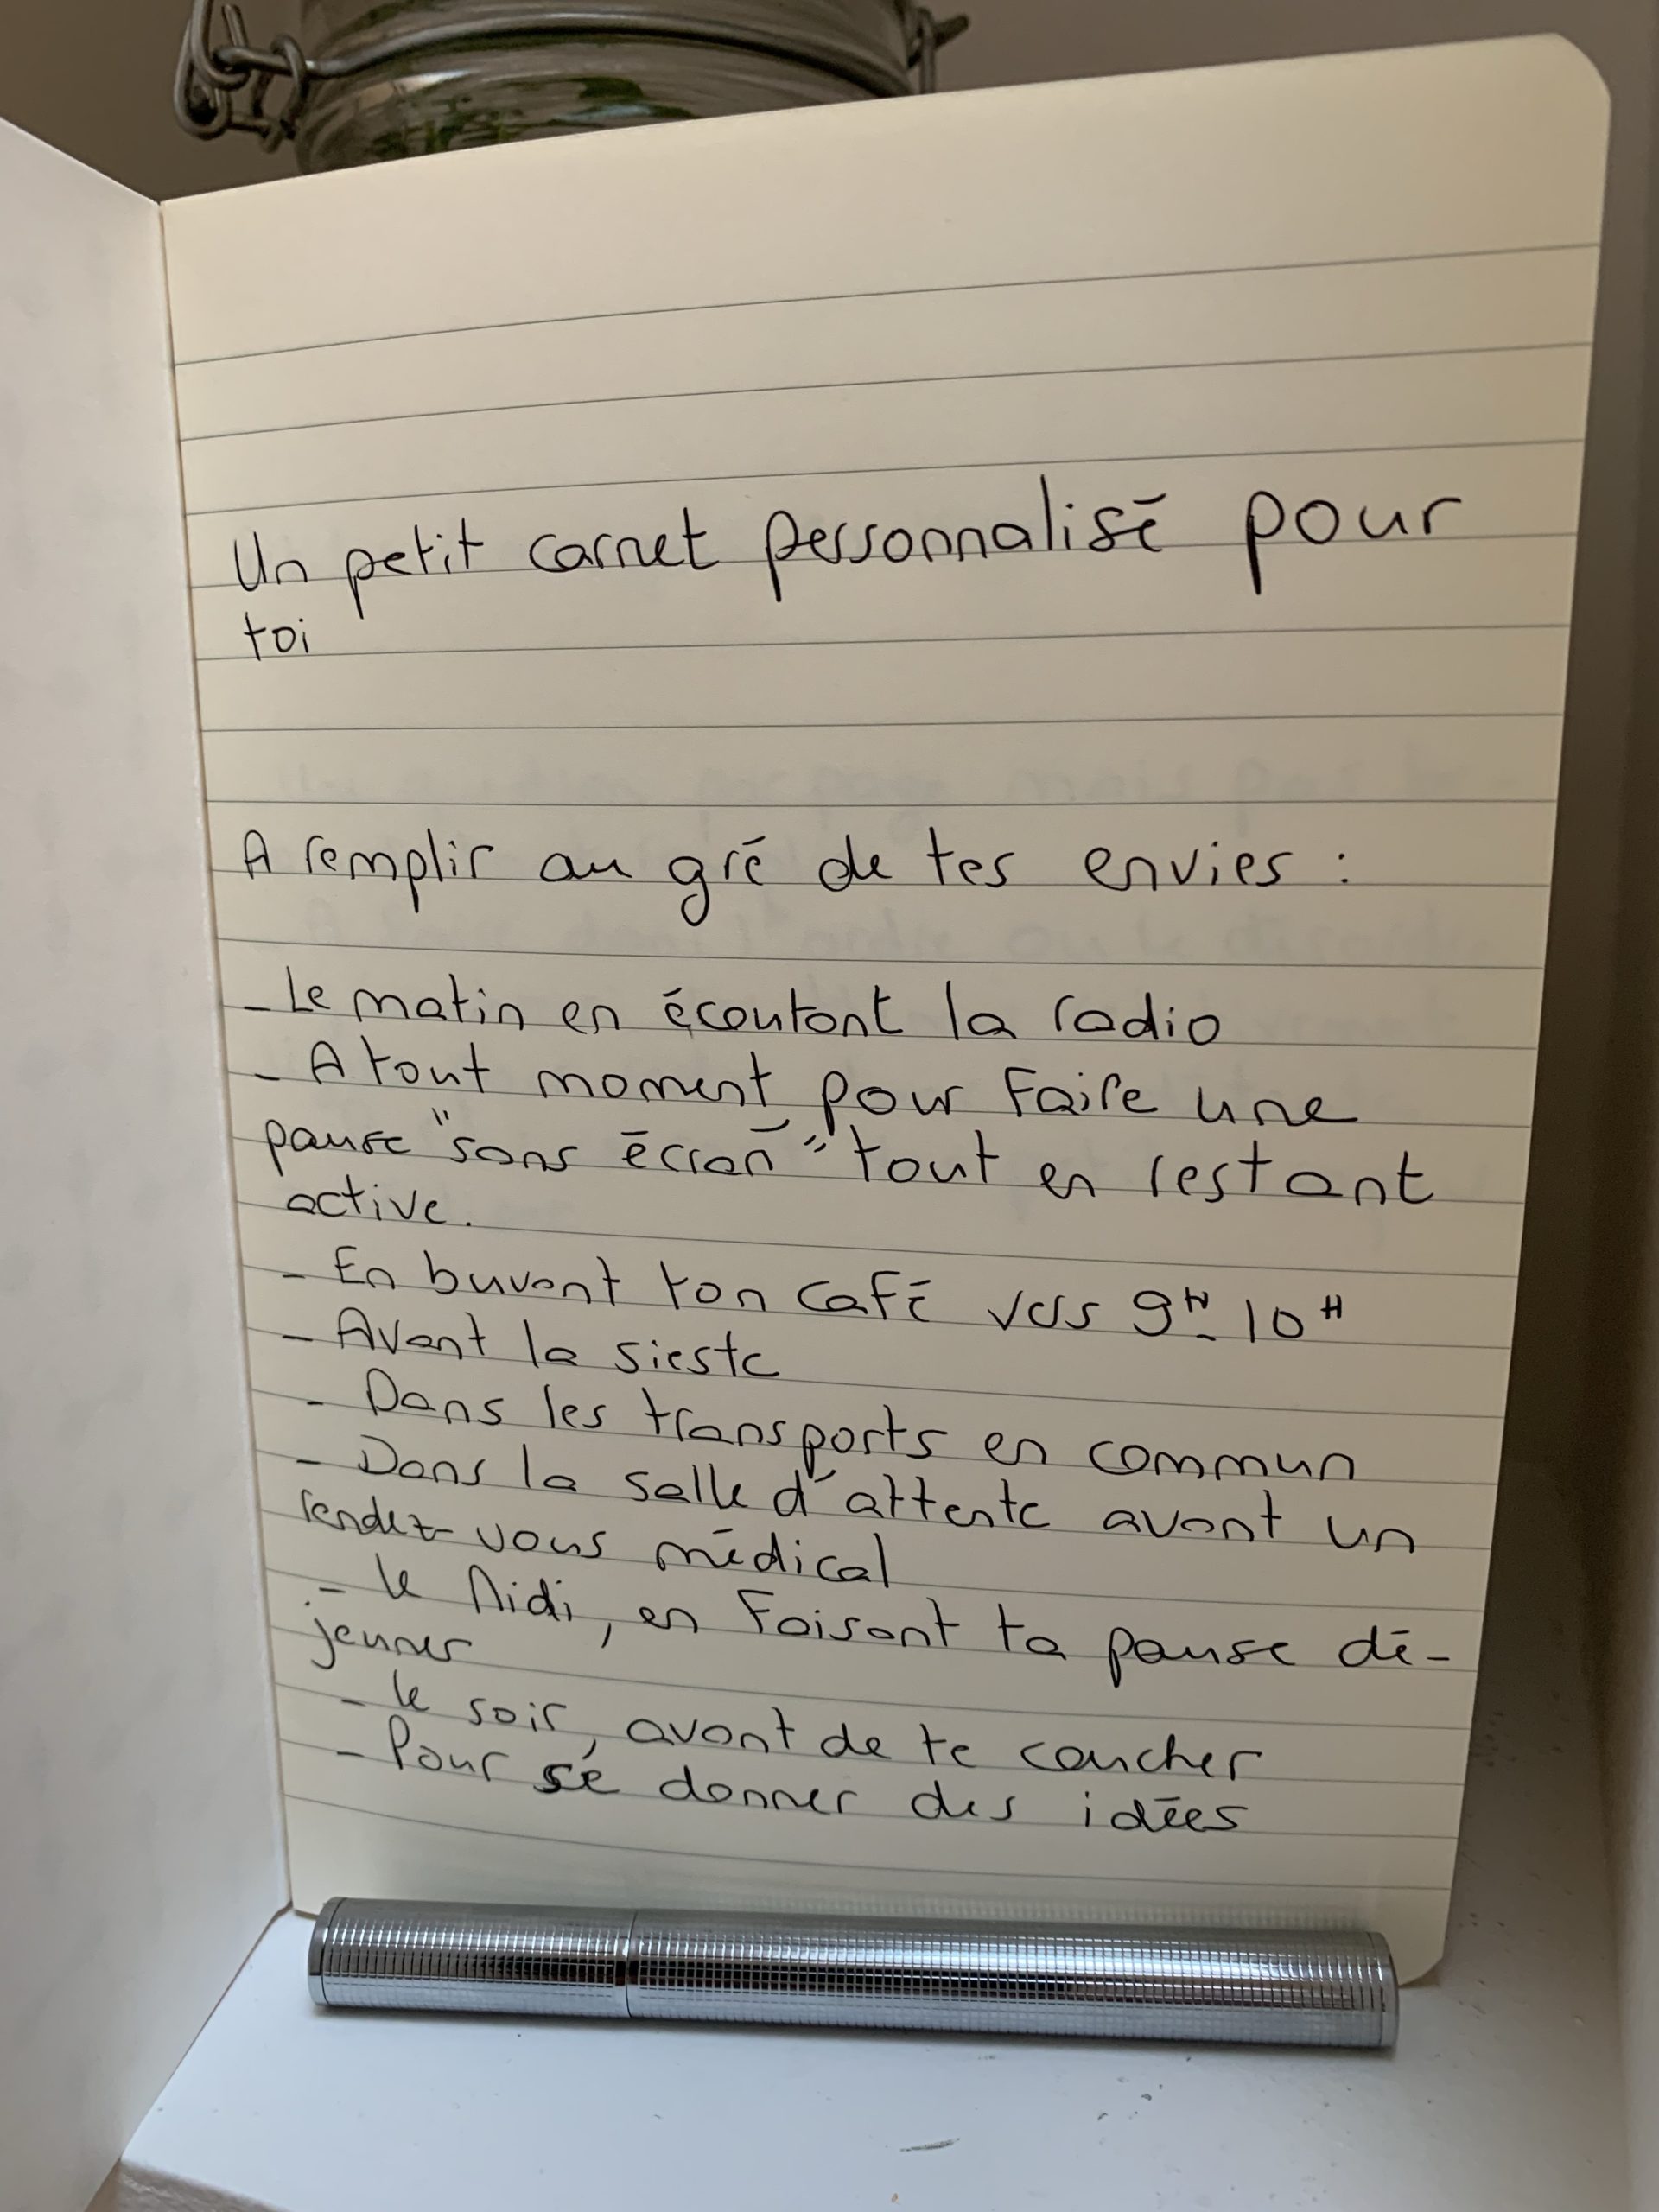 Un petit carnet personnalisé pour
toi
A remplir au gré de tes envies :
- Le matin en écoutant la radio
- A tout moment pour faire une
pause "sans écran" tout en restant
active.
- En buvant ton café vers 9H - 10H
- Avant la sieste
- Dans les transports en commun
- Dans la salle d'attente avant un
rendez-vous médical
- Le Midi, en faisant ta pause dé-
jeuner
- Le soir, avant de te coucher
- Pour se donner des idées